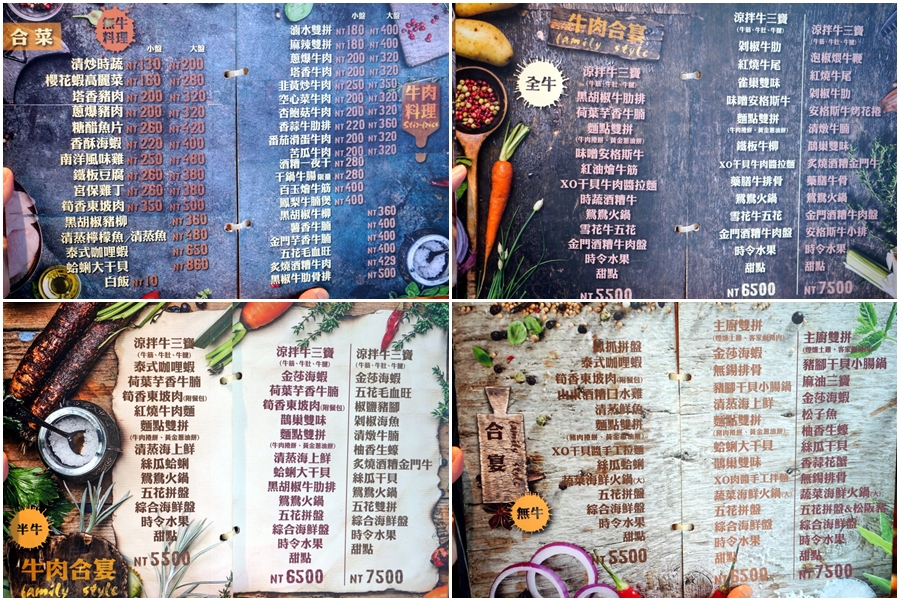 合菜
無牛
料理
小盤 大盤
清炒時蔬 NT130 NT200
櫻花蝦高麗菜 NT160 NT280
塔香豬肉 NT200 NT320
蔥爆豬肉 NT200 NT320
糖醋魚片 NT260 NT420
香酥海蝦 NT220 NT400
南洋風味雞 NT250 NT480
鐵板豆腐 NT260 NT380
宮保雞丁 NT260 NT380
筍香東坡肉 NT350 NT500
黑胡椒豬柳 NT360
清蒸檸檬魚／清蒸魚 NT480
泰式咖哩蝦 NT650
蛤蜊大干貝 NT860
白飯 NT10
小盤 大盤
滷水雙拼 NT180 NT400
麻辣雙拼 NT180 NT400
蔥爆牛肉 NT200 NT320
塔香牛肉 NT200 NT320
韭黃炒牛肉 NT250 NT350
空心菜牛肉 NT200 NT320
杏鮑菇牛肉 NT200 NT320
香蒜牛肋排 NT220 NT360
番茄滑蛋牛肉 NT200 NT320
苦瓜牛肉 NT200 NT320
酒糟一夜干 NT280
干鍋牛腸 NT400
百玉燴牛筋 NT400
鳳梨牛腩煲 NT400
黑胡椒牛柳 NT360
醬香牛腩 NT400
金門芋香牛腩 NT400
五花毛血旺 NT400
炙燒酒糟牛肉 NT429
黑椒牛肋骨排 NT500
牛肉
料理
牛肉合宴
family style
全牛
涼拌牛三寶
(牛筋、牛肚、牛腱)
黑胡椒牛肋排
荷葉芋香牛腩
麵點雙拼
(牛肉捲餅、黃金蔥油餅)
味噌安格斯牛
紅油燴牛筋
XO干貝牛肉醬拉麵
時蔬酒糟牛
鴛鴦火鍋
雪花牛五花
金門酒糟牛肉盤
時令水果
甜點
NT 5500
涼拌牛三寶
(牛筋、牛肚、牛腱)
剁椒牛肋
紅燒牛尾
雀巢雙味
味噌安格斯牛
麵點雙拼
(牛肉捲餅、黃金蔥油餅)
鐵板牛柳
XO干貝牛肉醬拉麵
藥膳牛排骨
鴛鴦火鍋
雪花牛五花
金門酒糟牛肉盤
時令水果
甜點
NT 6500
涼拌牛三寶
(牛筋、牛肚、牛腱)
泡椒煨牛鞭
紅燒牛尾
剁椒牛肋
安格斯牛烤花捲
清燉牛腩
鵲巢雙味
炙燒酒糟金門牛
藥膳牛骨
鴛鴦火鍋
金門酒糟牛肉盤
安格斯牛小排
時令水果
甜點
NT 7500
半牛
牛肉合宴
family style
涼拌牛三寶
(牛筋、牛肚、牛腱)
泰式咖哩蝦
荷葉芋香牛腩
筍香東坡肉(附餐包)
紅燒牛肉麵
麵點雙拼
(牛肉捲餅、黃金蔥油餅)
清蒸海上鮮
絲瓜蛤蜊
鴛鴦火鍋
五花拼盤
綜合海鮮盤
時令水果
甜點
NT 5500
涼拌牛三寶
(牛筋、牛肚、牛腱)
金莎海蝦
荷葉芋香牛腩
筍香東坡肉(附餐包)
鵲巢雙味
麵點雙拼
(牛肉捲餅、黃金蔥油餅)
清蒸海上鮮
蛤蜊大干貝
黑胡椒牛肋排
鴛鴦火鍋
五花拼盤
綜合海鮮盤
時令水果
甜點
NT 6500
涼拌牛三寶
(牛筋、牛肚、牛腱)
金莎海蝦
五花毛血旺
椒鹽豬腳
剁椒海魚
清燉牛腩
柚香生蠔
炙燒酒糟金門牛
絲瓜干貝
鴛鴦火鍋
五花雙拼
綜合海鮮盤
時令水果
甜點
NT 7500
合宴
無牛
鳳抓拼盤
泰式咖哩蝦
筍香東坡肉(附餐包)
酒糟口水雞
清蒸鮮魚
麵點雙拼
(豬肉捲餅、黃金蔥油餅)
XO干貝醬手工拉麵
絲瓜蛤蜊
蔬菜海鮮火鍋(大)
五花拼盤
綜合海鮮盤
時令水果
甜點
NT 5500
主廚雙拼
金莎海蝦
無錫排骨
豬腳干貝小腸鍋
清蒸海上鮮
麵點雙拼
(豬肉捲餅、黃金蔥油餅)
蛤蜊大干貝
鵲巢雙味
XO肉醬手工拌麵
蔬菜海鮮火鍋(大)
五花拼盤
綜合海鮮盤
時令水果
甜點
NT 6500
主廚雙拼
豬腳干貝小腸鍋
麻油三寶
金莎海蝦
松子魚
柚香生蠔
絲瓜干貝
香蒜花蟹
無錫排骨
蔬菜海鮮火鍋(大)
五花拼盤&松阪豬
綜合海鮮盤
時令水果
甜點
NT 7500